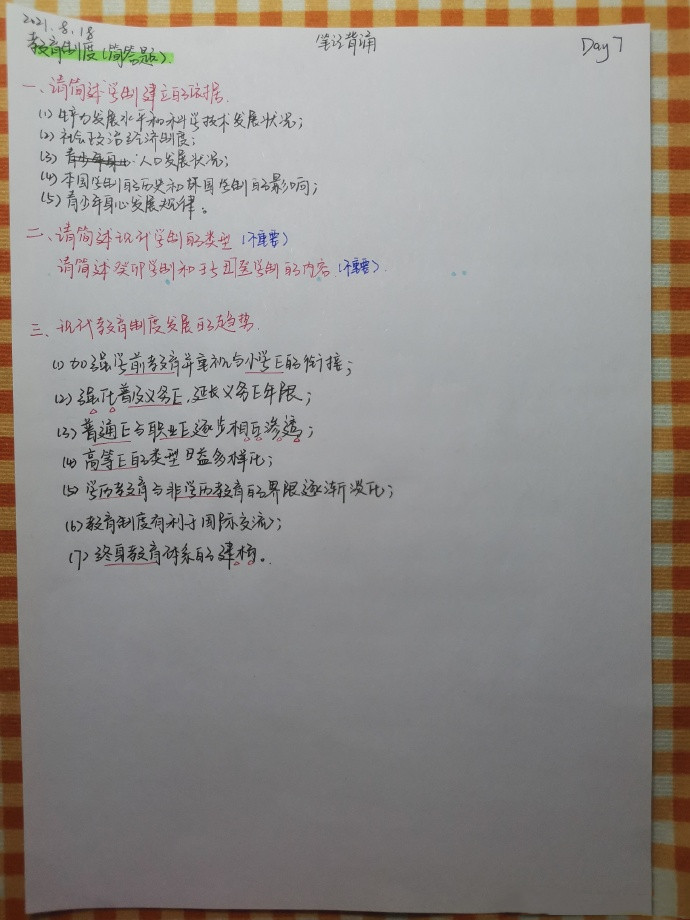 2021.8.18
教育制度(简答题)
笔记背诵
Day 7
一、请简述学制建立的依据.
(1) 生产力发展水平和科学技术发展状况;
(2) 社会政治经济制度;
(3) 青少年身心 人口发展状况;
(4) 本国学制的历史和外国学制的影响;
(5) 青少年身心发展规律。
二、请简述现代学制的类型 (不重要)
请简述癸卯学制和壬戌学制的内容 (不重要)
三、现代教育制度发展的趋势.
(1) 加强学前教育并重视与小学E的衔接;
(2) 强化普及义务E,延长义务E年限;
(3) 普通E与职业E逐步相互渗透;
(4) 高等E的类型日益多样化;
(5) 学历教育与非学历教育的界限逐渐淡化;
(6) 教育制度有利于国际交流;
(7) 终身教育体系的建构。